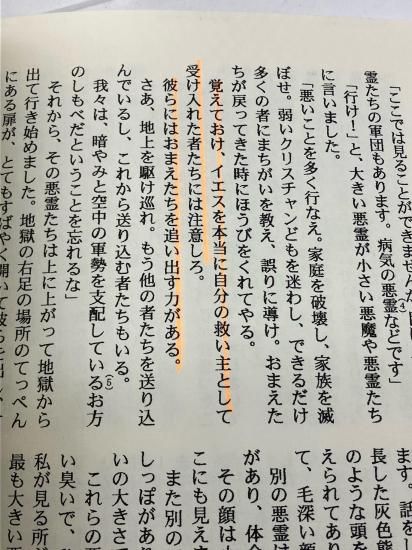 「ここでは見ることができません
霊たちの軍団もあります。病気の悪霊などです」(4)
「行け!」と、大きい悪霊が小さい悪魔や悪霊たち
に言いました。
「悪いことを多く行なえ。家庭を破壊し、家族を滅
ぼせ。弱いクリスチャンどもを迷わし、できるだけ
多くの者にまちがいを教え、誤りに導け。おまえた
ちが戻ってきた時にほうびをくれてやる。
覚えておけ、イエスを本当に自分の救い主として
受け入れた者たちには注意しろ。
彼らにはおまえたちを追い出す力がある。
さあ、地上を駆け巡れ。もう他の者たちを送り込
んでいるし、これから送り込む者たちもいる。
我々は、暗やみと空中の軍勢を支配しているお方(5)
のしもべだということを忘れるな」
それから、その悪霊たちは上に上がって地獄から
出て行き始めました。地獄の右足の場所のてっぺん
にある扉が、とてもすばやく開いて
ます。話を
長した灰色態
のような頭を
えられてあり
て、毛深い
があり、体
別の悪霊は
その顔は
こにも見えま
また別の
しっぽがあり
いの大きさ
これらの
い臭いで、
私が見る所
最も大きい